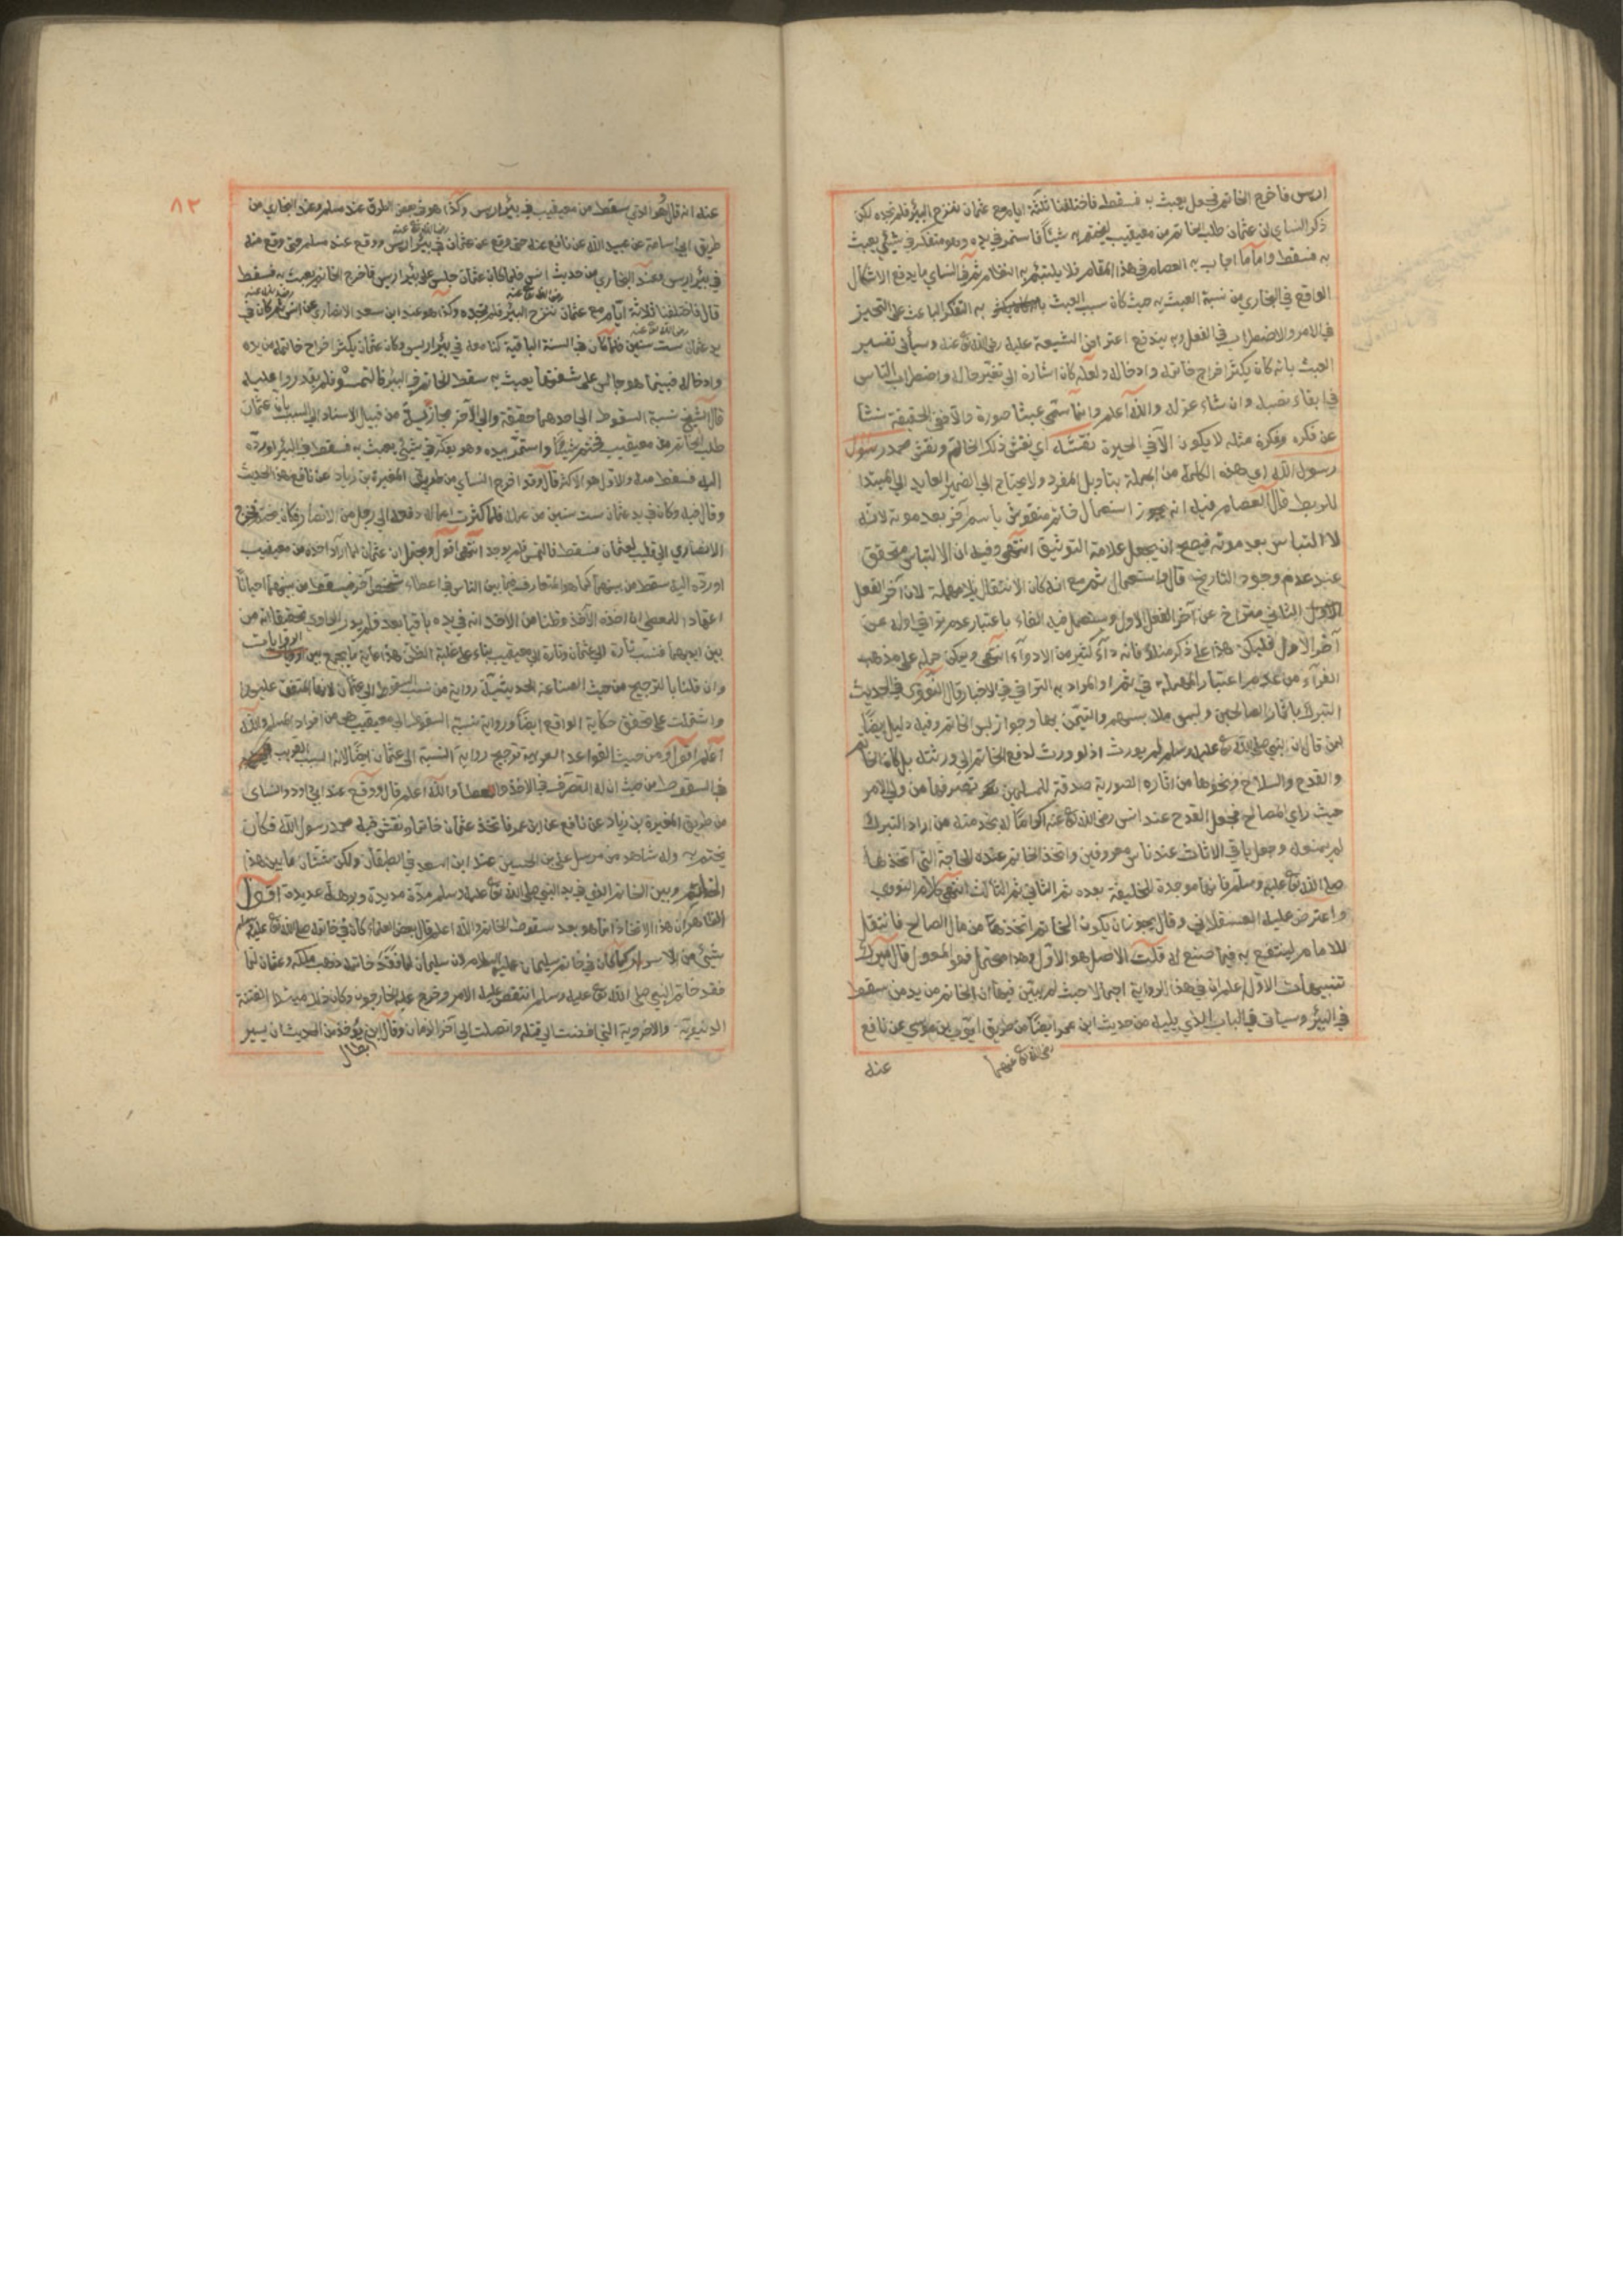 اريس فاخرج الخاتم فجعل يعبث به فسقط فاختلفنا ثلثة ايام مع عثمان ننزح البئر فلم نجده لكن
ذكر النساي ان عثمان طلب الخاتم من معيقيب ليختم به شيئا فاستمر في يده وهو متفكر في شيئ يعبث
به فسقط واما ما اجاب به العصام في هذا المقام فلا يلتئم به النظام ثم في النساي ما يدفع الاشكال
الواقع في البخاري من نسبة العبث به حيث كان سبب العبث به التفكر الباعث على التحيز
في الامر والاضطراب في الفعل وبه يندفع اعتراض الشيعة عليه رضي الله تع عنه وسيأتي تفسير
العبث بانه كان يكثر اخراج خاتمه وادخاله ولعله كان اشارة الى تغير حاله واضطراب الناس
في ابقاء نصبه وان شاء عزله والله اعلم وانما سمي عبثا صورة والا ففي الحقيقة نشأ
عن فكره وفكرة مثله لا يكون الا في الحيرة نقشه اي نقش ذلك الخاتم ونقش محمد رسول
رسول الله اي هذه الكلمة من الجملة بتاويل المفرد ولا يحتاج الي الضمير العايد الي المبتدا
للربط قال العصام فيه انه يجوز استعمال خاتم منقوش باسم آخر بعد موته لانه
لا التباس بعد موته فيصح ان يجعل علامة التوثيق انتهى وفيه ان الالتباس متحقق
عند عدم وجود التاريخ قال واستعمال ثم مع انه كان الانتقال بلا مهملة لان آخر الفعل
الثاني متراخ عن آخر الفعل الاول ويستعمل فيه الفاء باعتبار عدم تراخي اوله عن
آخر الاول فليكن هذا على ذكر منك فانه دآء كثير من الادوآء انتهى ويمكن حمله على مذهب
الفرآء من عدم اعتبار المهملة في ثم او المراد به التراخي في الاخبار قال النووي في الحديث
التبرك باثار الصالحين ولبس ملابسهم والتيمن بها وجواز لبس الخاتم وفيه دليل ايضا
لمن قال ان النبي صلى الله تع عليه وسلم لم يورث اذ لو ورث لدفع الخاتم الي ورثته بل كان الخاتم
والقدح والسلاح ونحوها من اثاره الصورية صدقة للمسلمين تصرفها من ولي الامر
حيث راي المصالح فجعل القدح عند انس رضي الله تع عنه اكراما له بخدمته من اراد التبرك
لم يمنعه وجعل باقي الاثاث عند ناس معروفين واتخذ الخاتم عنده للحاجة التي اتخذ لها
صلى الله تع عليه وسلم فانها موجدة للخليفة بعده ثم الثاني ثم الثالث انتهى كلام النووي
واعترض عليه العسقلاني وقال يجوز ان يكون الخاتم اتخذ من مال الصالح فانتقل
للامام لينتفع به فيما صنع له قلت الاصل هو الاول وهذا محتمل فهو المعول قال ميرك
تنبيهات الاول اعلم ان في هذا الرواية اجمالا حيث لم يتبين فيها ان الخاتم من يد من سقط
في البئر وسياتي في الباب الذي يليه من حديث ابن عمر ايضا من طريق ايوب بن موسي عن نافع
رضي الله تع عنهما
عنه
٨٢
عنه انه قال هو الذي سقط من معيقيب في بئر اريس وكذا هو في بعض الطرق عند مسلم وعند البخاري من
طريق ابي اسامة عن عبيد الله عن نافع عنه حتى وقع عن عثمان في بئر اريس ووقع عند مسلم حتى وقع منه
في بئر اريس وعند البخاري من حديث انس فلما كان عثمان جلس على بئر اريس فاخرج الخاتم يعبث به فسقط
قال فاختلفنا ثلاثة ايام مع عثمان ننزح البئر فلم نجده وكذا هو عند ابن سعد الانصاري عن انس ثم كان في
يد عثمان ست سنين فلما كان في السنة الباقية كنا معه في بئر اريس وكان عثمان يكثر اخراج خاتمه من يده
وادخاله فبينما هو جالس على شفتها يعبث به سقط الخاتم في البئر فالتمسوه فلم يقدروا عليه
قال الشيخ نسبة السقوط الى احدهما حقيقة والى الآخر مجازية من قبيل الاسناد الى السبب بان عثمان
طلب الخاتم من معيقيب فختم شيئا واستمر بيده وهو يفكر في شيئ يعبث به فسقط في البئر او رده
اليه فسقط منه والاول هو الاكثر قال وقد اخرج النساي من طريق المغيرة بن زياد عن نافع هذا الحديث
وقال فيه وكان في يد عثمان ست سنين من عمله فلما كثرت اعماله دفعه الى رجل من الانصار فكان يختم به فخرج
الانصاري الى قليب لعثمان فسقط فالتمس فلم يوجد انتهى اقول ويحتمل ان عثمان لما اراد اخذه من معيقيب
او رده اليه سقط من بينهما كما هو متعارف فيما بين الناس في اعطاء شخص آخر فيسقط من بينهما احيانا
اعتمادا للمعطي انه اخذه الآخذ وظنا من الآخذ انه في يده باقيا بعد فلم يدر الحاوي تحقيقا انه من
بين ايديهما فنسب تارة الى عثمان وتارة الى معيقيب بناء على غلبة الظن هذا غاية ما يجمع بين الروايات
وان قلنا بالترجيح من حيث الصناعة الحديثية رواية من نسب السقوط الى عثمان لانها المتفق عليها
واشتملت على تحقق حكاية الواقع ايضا ورواية نسبة السقوط الى معيقيب هي من افراد مسلم والله
اعلم اقول ومن حيث القواعد العربية ترجيح رواية النسبة الى عثمان ايضا لانه السبب القريب
في السقوط من حيث ان له التصرف في الاخذ والعطاء والله اعلم قال ووقع عند ابي داود والنساى
من طريق المغيرة بن زياد عن نافع عن ابن عمر فاتخذ عثمان خاتما ونقش فيه محمد رسول الله فكان
يختم به وله شاهد من مرسل علي بن الحسين عند ابن السعد في الطبقات ولكن شتان ما بين هذا
الخاتم وبين الخاتم الذي في يد النبي صلى الله تع عليه وسلم مدة مديدة وبرهة عديدة اقول
الظاهر ان هذا الاتخاذ انما هو بعد سقوط الخاتم والله اعلم قال بعض العلماء كان في خاتمه صلى الله تع عليه وسلم
شيئ من الاسرار كما كان في خاتم سليمان عليه السلام لان سليمان لما فقد خاتمه ذهب ملكه وعثمان لما
فقد خاتم النبي صلى الله تع عليه وسلم انتقض عليه الامر وخرج عليه الخارجون وكان ذلك مبتدا الفتنة
الدنيوية والاخروية التي افضت الى قتله واتصلت الى آخر الزمان وقال ابن يؤخذ من الحديث ان يسير
بطال